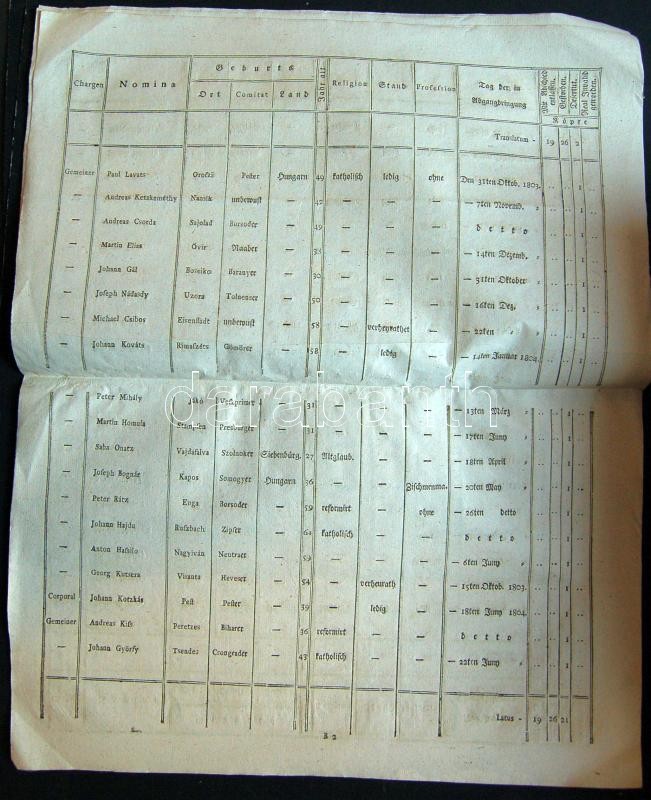 Chargen Nomina Geburts Jahr alt Religion Stand Profession Tag der in Abgangbringung Mit Abschied entlassen. Gestorben. Desertirt. Real Invalid geworden.
Ort Comitat Land Köpfe
Translatum - 19 26 2 ..
Gemeiner Paul Lavats Oroszi Pester Hungarn 49 katholisch ledig ohne Den 31ten Oktob. 1803. .. .. 1 ..
— Andreas Ketzkeméthy Naszik unbewust — 42 — — — — 7ten Novemb. „ .. .. 1 ..
— Andreas Csorda Sajolad Borsoder — 49 — — — detto .. .. 1 ..
— Martin Elias Óvir Raaber — 38 — — — — 14ten Dezemb. „ .. .. 1 ..
— Johann Gál Baranyer — 30 — — — — 31ten Oktober „ .. .. 1 ..
— Joseph Nádasdy Uzora Tolnenser — 50 — — — — 16ten Dez. „ .. .. 1 ..
— Michael Csibos Eisenstadt unbewust — 58 — verheyrathet — — 22ten „ „ .. .. 1 ..
— Johann Kováts Rimaszéts Gömörer — 58 — ledig — — 14ten Januar 1804. .. .. 1 ..
— Peter Mihály Jáko Veszprimer — 31 — — — — 13ten März „ .. .. 1 ..
— Martin Homula Stampfen Presburger — 31 — — — — 17ten Juny „ .. .. 1 ..
— Saba Onatz Vajdafalva Szolnoker Siebenbürg. 27 Altglaub. — — — 18ten April „ .. .. 1 ..
— Joseph Bognár Kapos Somogyer Hungarn 36 — — Zischmenma. — 20ten May „ .. .. 1 ..
— Peter Rátz Enga Borsoder — 59 reformirt — ohne — 26ten detto .. .. 1 ..
— Johann Hajdu Ruszbach Zipser — 64 katholisch — — detto .. .. 1 ..
— Anton Nagyiván Neutraer — 59 — — — — 6ten Juny „ .. .. 1 ..
— Georg Kutsera Visanta Heveser — 54 — verheurath — — 15ten Oktob. 1803. .. .. 1 ..
Corporal Johann Kotzkás Pest Pester — 39 — ledig — — 18ten Juny 1804. .. .. 1 ..
Gemeiner Andreas Kiss Peretzes Biharer — 36 reformirt — — detto .. .. 1 ..
— Johann Györfy Tsendez Csongrader — 43 katholisch — — — 22ten Juny „ .. .. 1 ..
Latus - 19 26 21 ..
B 2
darabanth